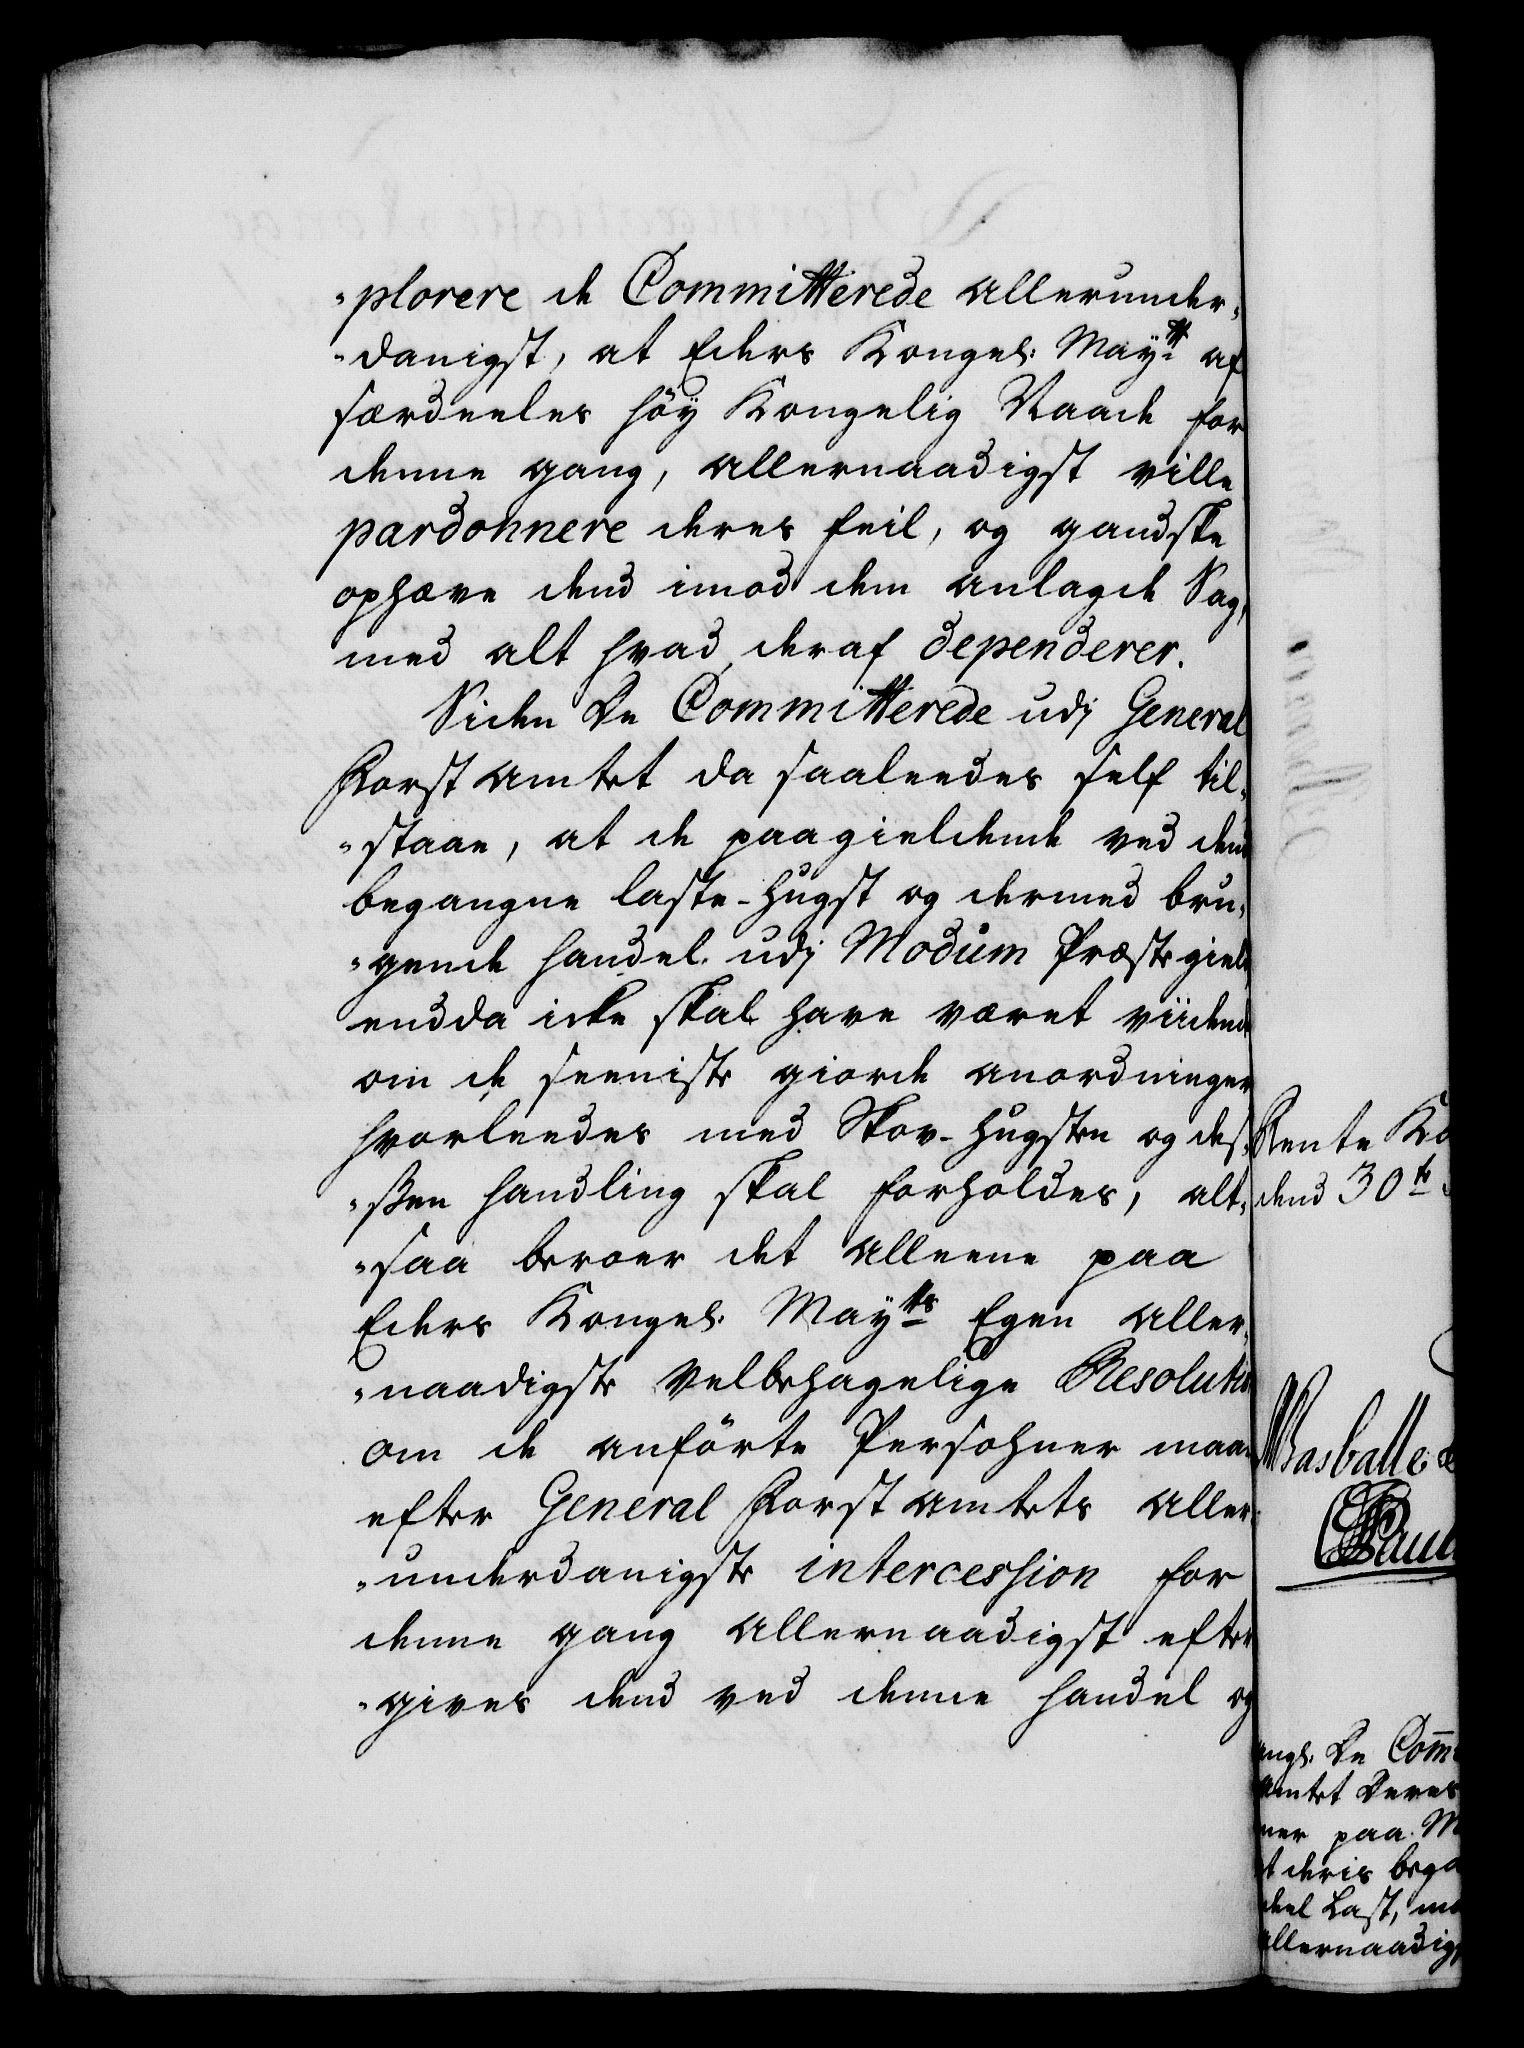 "plorere de Committerede allerunder-
"danigst, at Eders Kongel: Maytt af
særdeeles höy Kongelig Naade for
denne gang, allernaadigst ville
pardonnere deres feil, og gandske
ophæve dend imod dem anlagde Sag,
med alt hvad deraf dependerer.
Siden De Committerede udj General
Forst Amtet da saaleedes self til-
"staae, at de paagieldende ved den
begangne laste-hugst og dermed bru-
"gende handel udj Modum Præstegield
endda icke skal have været viidende
om de seeniste giorde anordninger
hvorleedes med Skov-hugsten og des-
"sen handling skal forholdes, alt-
"saa beroer det alleene paa
Eders Kongel. Maytts Egen aller-
"naadigste velbehagelige Resolution
om de anförte Persohner maae
efter General Forst Amtets aller-
"underdanigste intercession for
denne gang allernaadigst efter
"gives dend ved denne handel og
Rente Ka
dend 30te
Basballe
Comm
angl: De
Amtet Deres
ner paa M
t deris bega
deel Last, me
allernaadigs